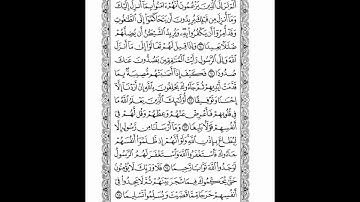 أَلَمْ تَرَ إِلَى ٱلَّذِينَ يَزْعُمُونَ أَنَّهُمْ ءَامَنُوا۟ بِمَآ أُنزِلَ إِلَيْكَ
وَمَآ أُنزِلَ مِن قَبْلِكَ يُرِيدُونَ أَن يَتَحَاكَمُوٓا۟ إِلَى ٱلطَّـٰغُوتِ
وَقَدْ أُمِرُوٓا۟ أَن يَكْفُرُوا۟ بِهِۦ وَيُرِيدُ ٱلشَّيْطَـٰنُ أَن يُضِلَّهُمْ
ضَلَـٰلًۢا بَعِيدًا ٦٠ وَإِذَا قِيلَ لَهُمْ تَعَالَوْا۟ إِلَىٰ مَآ أَنزَلَ
ٱللَّهُ وَإِلَى ٱلرَّسُولِ رَأَيْتَ ٱلْمُنَـٰفِقِينَ يَصُدُّونَ عَنكَ
صُدُودًا ٦١ فَكَيْفَ إِذَآ أَصَـٰبَتْهُم مُّصِيبَةٌۢ بِمَا
قَدَّمَتْ أَيْدِيهِمْ ثُمَّ جَآءُوكَ يَحْلِفُونَ بِٱللَّهِ إِنْ أَرَدْنَآ إِلَّآ
إِحْسَـٰنًا وَتَوْفِيقًا ٦٢ أُو۟لَـٰٓئِكَ ٱلَّذِينَ يَعْلَمُ ٱللَّهُ مَا
فِى قُلُوبِهِمْ فَأَعْرِضْ عَنْهُمْ وَعِظْهُمْ وَقُل لَّهُمْ فِىٓ
أَنفُسِهِمْ قَوْلًۢا بَلِيغًا ٦٣ وَمَآ أَرْسَلْنَا مِن رَّسُولٍ إِلَّا
لِيُطَاعَ بِإِذْنِ ٱللَّهِ وَلَوْ أَنَّهُمْ إِذ ظَّلَمُوٓا۟ أَنفُسَهُمْ
جَآءُوكَ فَٱسْتَغْفَرُوا۟ ٱللَّهَ وَٱسْتَغْفَرَ لَهُمُ ٱلرَّسُولُ
لَوَجَدُوا۟ ٱللَّهَ تَوَّابًا رَّحِيمًا ٦٤ فَلَا وَرَبِّكَ لَا يُؤْمِنُونَ
حَتَّىٰ يُحَكِّمُوكَ فِيمَا شَجَرَ بَيْنَهُمْ ثُمَّ لَا يَجِدُوا۟ فِىٓ
أَنفُسِهِمْ حَرَجًا مِّمَّا قَضَيْتَ وَيُسَلِّمُوا۟ تَسْلِيمًا ٦٥